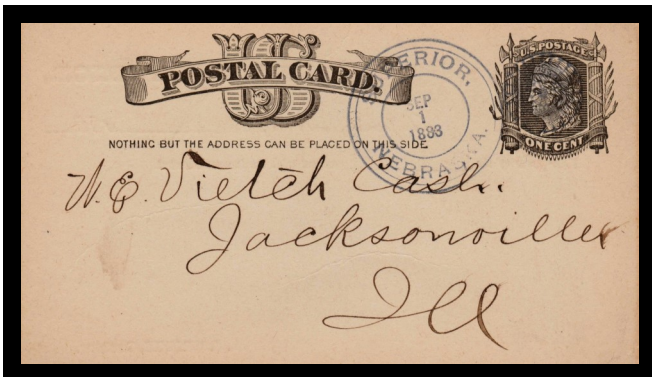 US
POSTAL CARD.
U.S. POSTAGE
ONE CENT
SUPERIOR,
SEP
1
1883
NEBRASKA.
NOTHING BUT THE ADDRESS CAN BE PLACED ON THIS SIDE
W. E. Vietch Cash.
Jacksonville
Ill